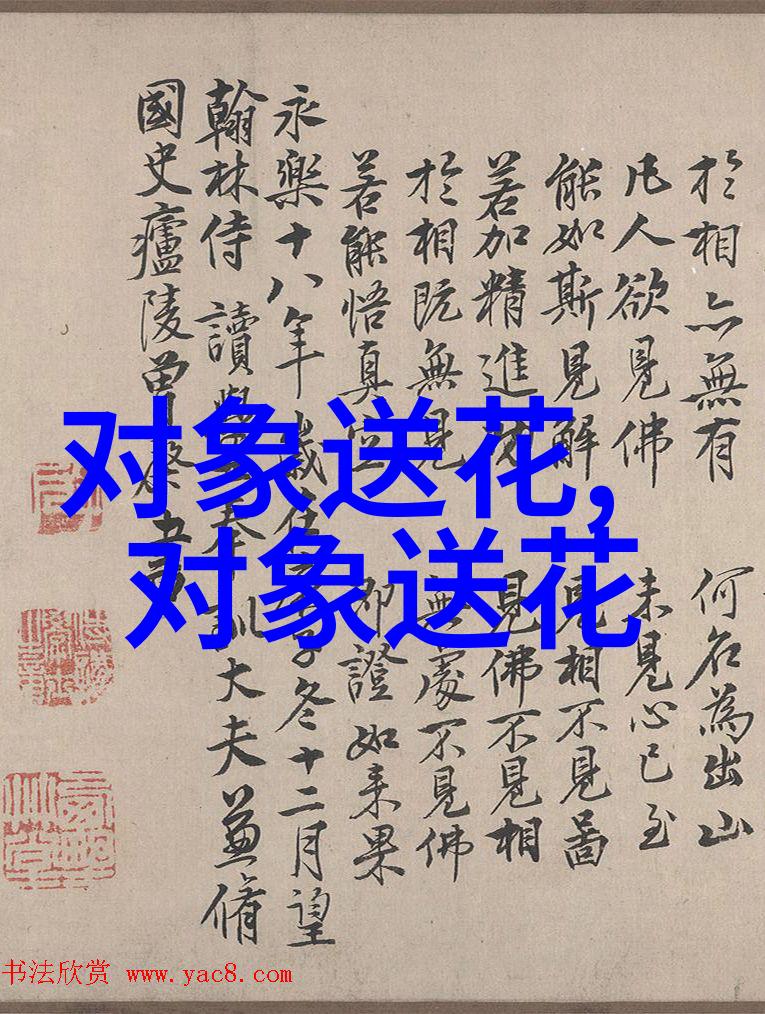 於相亦無有 何名為出山
凡人欲見佛 未見心已至
能如斯見解 見相不見啚
若加精進 見佛不見相
於相既無見 無處不見佛
若能悟真空 即證如来果
永樂十八年歲在子冬十二月望
翰林侍讀學奉訓大夫兼脩
國史廬陵曾棨書
对象送花,
对象送花
书法欣赏 www.yac8.com